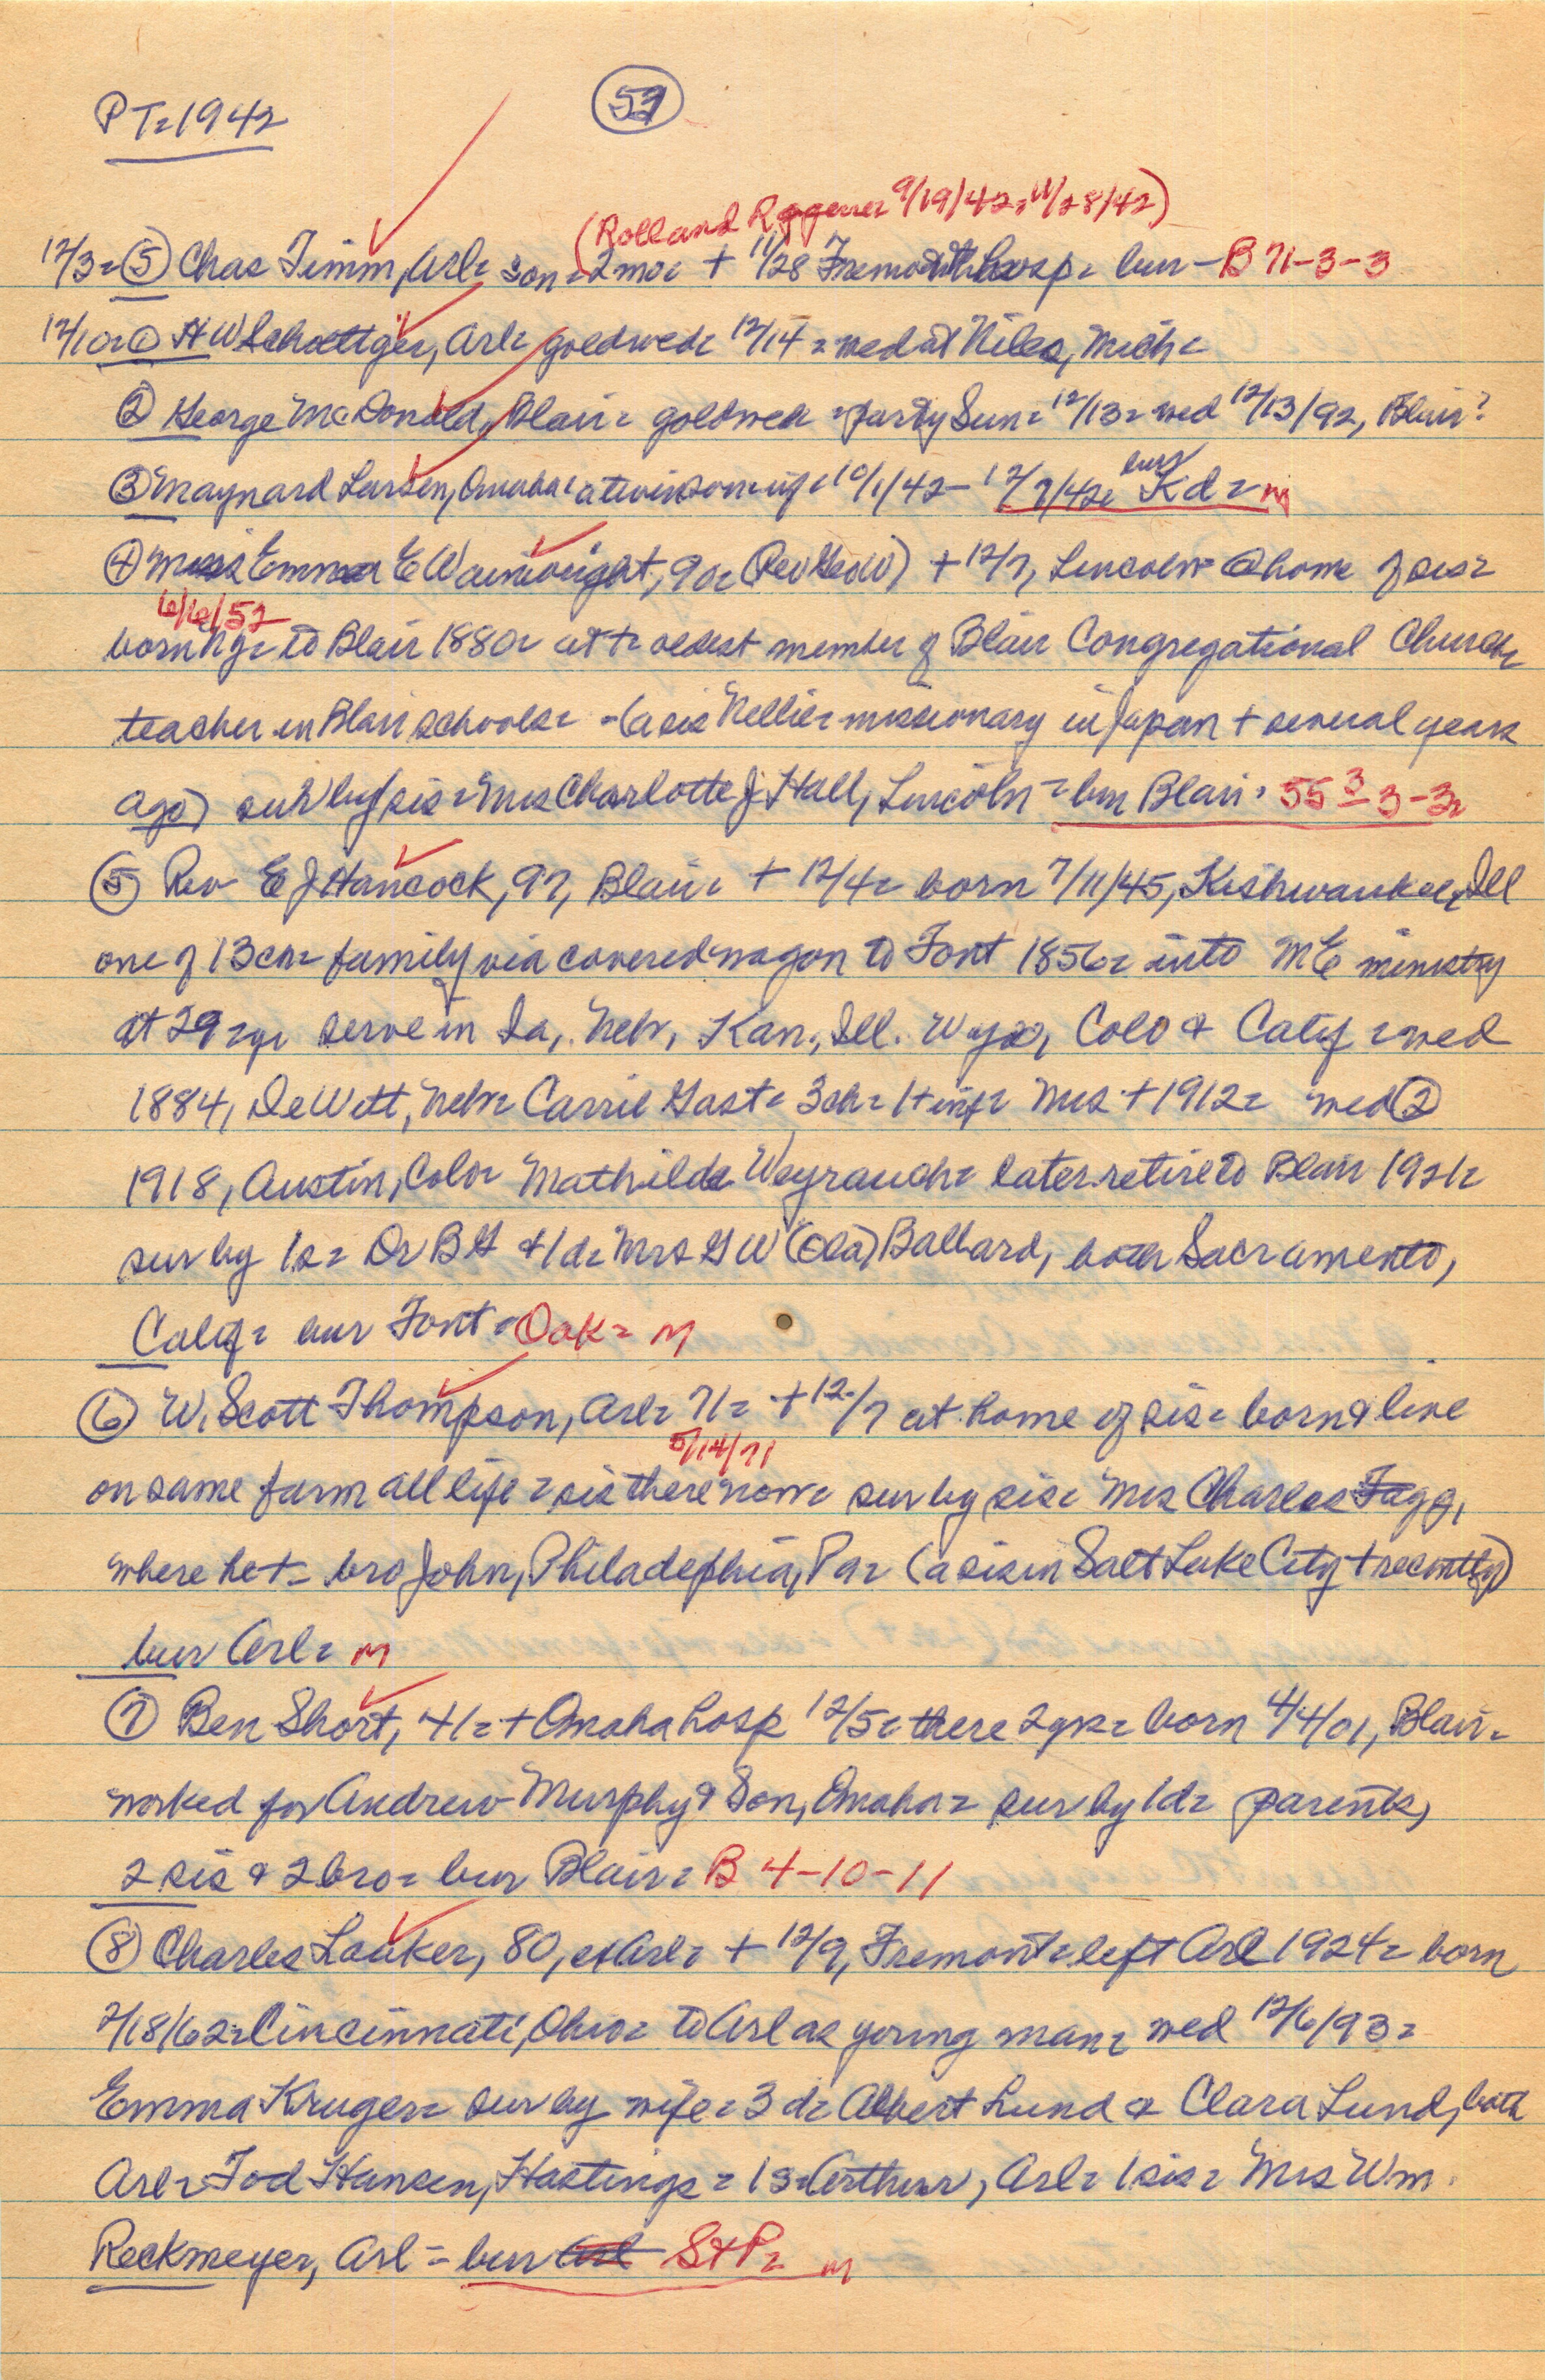 PT=1942
57
(Rolland Roggener 9/19/42=11/28/42)
12/3=⑤ Chas Timm, Arl= son=2mo= + 11/28 Fremont hosp= bur - B 71-3-3
12/10=① H W Schoettger, Arl= goldwed= 12/14 = wed at Niles, Mich=
② George McDonald, Blair= goldwed =party Sun= 12/13= wed 12/13/92, Blair?
bur
③ Maynard Larsen, Omaha= a twin son=inf= 10/1/42- 12/7/42= Kd= m
④ Miss Emma E Wainwright, 90= (Rev Geo W) + 12/7, Lincoln= @ home of sis=
6/6/52
born Ny= to Blair 1880= at += oldest member of Blair Congregational Church=
teacher in Blair schools= -(a sis Nellie= missionary in Japan + several years
ago) sur by sis= Mrs Charlotte J Hall, Lincoln = bur Blair= 55 3-3-3=
⑤ Rev E J Hancock, 97, Blair= + 12/4= born 7/11/45, Kishwaukee, Ill
one of 13 ch= family via covered wagon to Font 1856= into ME ministry
at 29=yr serve in Ia, Nebr, Kan, Ill. Wyo, Colo & Calif =wed
1884, DeWitt, Nebr= Carrie Gast= 3ch= 1+inf= Mrs + 1912= wed ②
1918, Austin, Colo= Mathilde Weyrauch= later retire to Blair 1921=
sur by 1s= Dr B G & 1d= Mrs G W (Ola) Ballard, both Sacramento,
Calif= bur Font = Oak= m
⑥ W. Scott Thompson, Arl= 71= + 12/7 at home of sis= born & live
5/14/71
on same farm all life = sis there now= sur by sis= Mrs Charles Fagg,
where he += bro John, Philadephia, Pa= (a sis in Salt Lake City + recently)
bur Arl= m
⑦ Ben Short, 41= + Omaha hosp 12/5= there 2 yrs= born 4/4/01, Blair=
worked for Andrew Murphy & Son, Omaha= sur by 1d= parents,
2 sis & 2 bro= bur Blair= B 4-10-11
⑧ Charles Lauker, 80, exArl= + 12/9, Fremont= left Arl 1924= born
2/18/62= Cincinnati, Ohio= to Arl as young man= wed 12/6/93=
Emma Kruger= sur by wife= 3 d= Albert Lund & Clara Lund, both
Arl= Tod Hansen, Hastings= 1s=Arthur, Arl= 1sis= Mrs Wm.
Reckmeyer, Arl = bur Arl StP= m